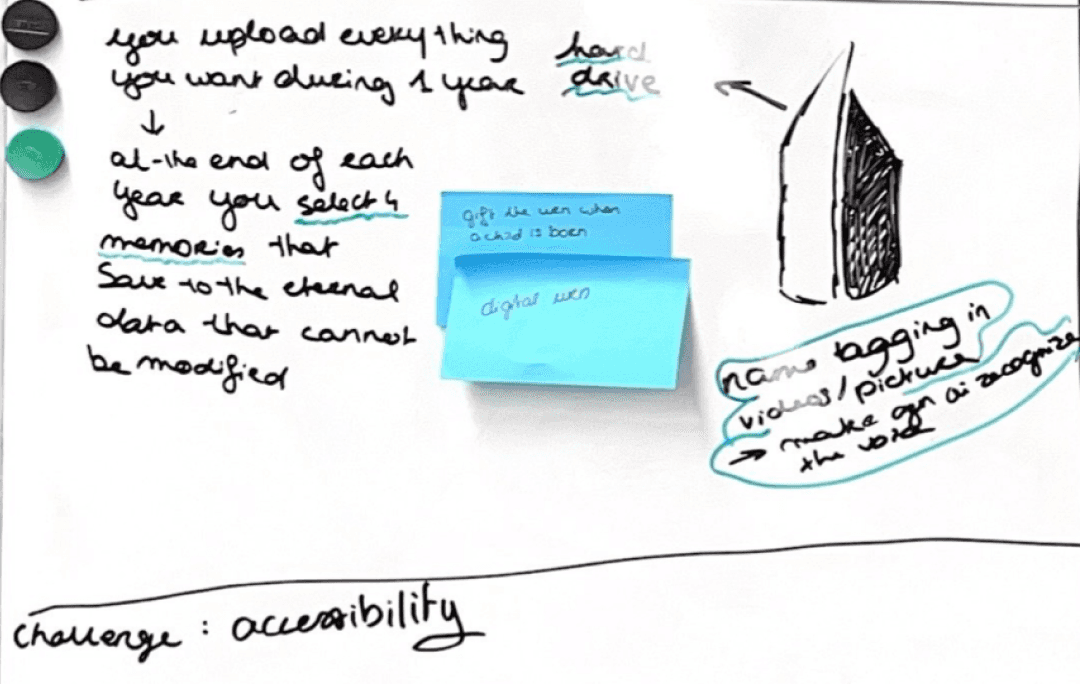 you upload everything
you want during 1 year
↓
at the end of each
year you select 4
memories that
save to the eternal
data that cannot
be modified
hard
drive
gift the urn when
a child is born
digital urn
name tagging in
videos/picture
→ make ai recognize
the voice
challenge : accessibility